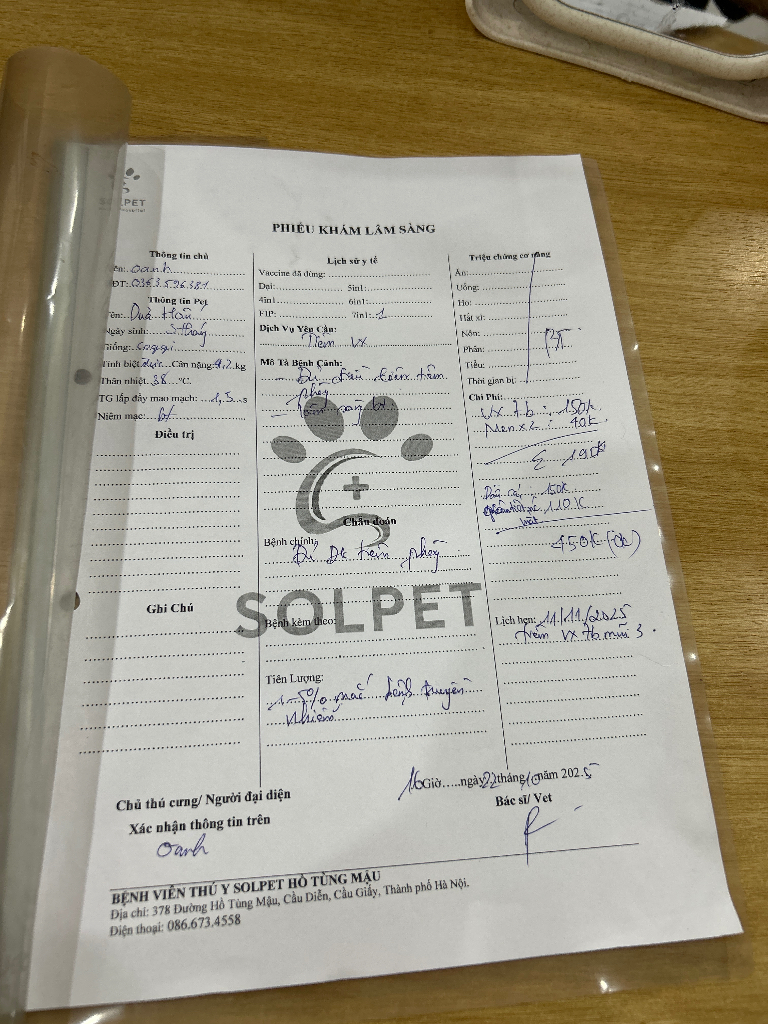 SOLPET
PHIẾU KHÁM LÂM SÀNG
Thông tin chủ
Tên: Oanh
SĐT: 0353.596.381
Thông tin Pet
Tên: Dưa Hấu
Ngày sinh: 3 tháng
Giống: Corgi
Tính biệt: đực Cân nặng: 9,7 kg
Thân nhiệt: 38 °C.
TG lấp đầy mao mạch: 1,5 s
Niêm mạc: bt
Điều trị
Ghi Chú
Lịch sử y tế
Vaccine đã dùng:
Dại: 5in1:
4in1 6in1:
FIP: 7in1: 1
Dịch Vụ Yêu Cầu:
Tiêm VX
Mô Tả Bệnh Cảnh:
- Đủ điều kiện tiêm
phòng
Chẩn đoán
Bệnh chính:
Đủ Đk tiêm phòng
SOLPET
Bệnh kèm theo:
Tiên Lượng:
1-5% mắc bệnh truyền
nhiễm
Triệu chứng cơ năng
Ăn:
Uống:
Ho:
Hắt xì:
Nôn:
Phân: BT
Tiểu:
Thời gian bị:
Chi Phí:
VX 7b : 150k
Men x2 : 40k
Σ 190k
150k
110k
450k (ck)
Lịch hẹn: 11/11/2025
tiêm VX 7b mũi 3.
16 Giờ.....ngày 22 tháng 10 năm 2025
Chủ thú cưng/ Người đại diện
Xác nhận thông tin trên
Oanh
Bác sĩ/ Vet
BỆNH VIỆN THÚ Y SOLPET HỒ TÙNG MẬU
Địa chỉ: 378 Đường Hồ Tùng Mậu, Cầu Diễn, Cầu Giấy, Thành phố Hà Nội.
Điện thoại: 086.673.4558